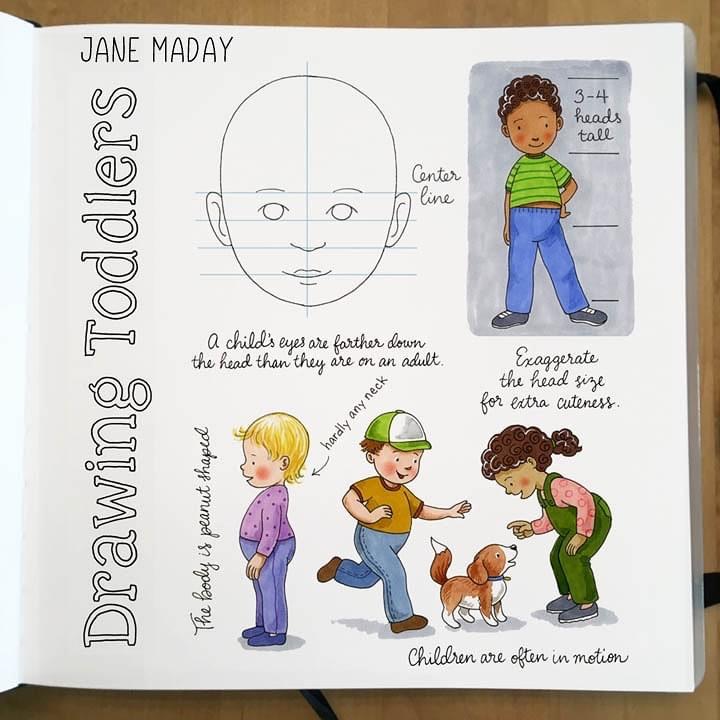 JANE MADAY
Drawing Toddlers
Center
line
3-4
heads
tall
A child's eyes are farther down
the head than they are on an adult.
Exaggerate
the head size
for extra cuteness.
The body is peanut shaped
hardly any neck
Children are often in motion